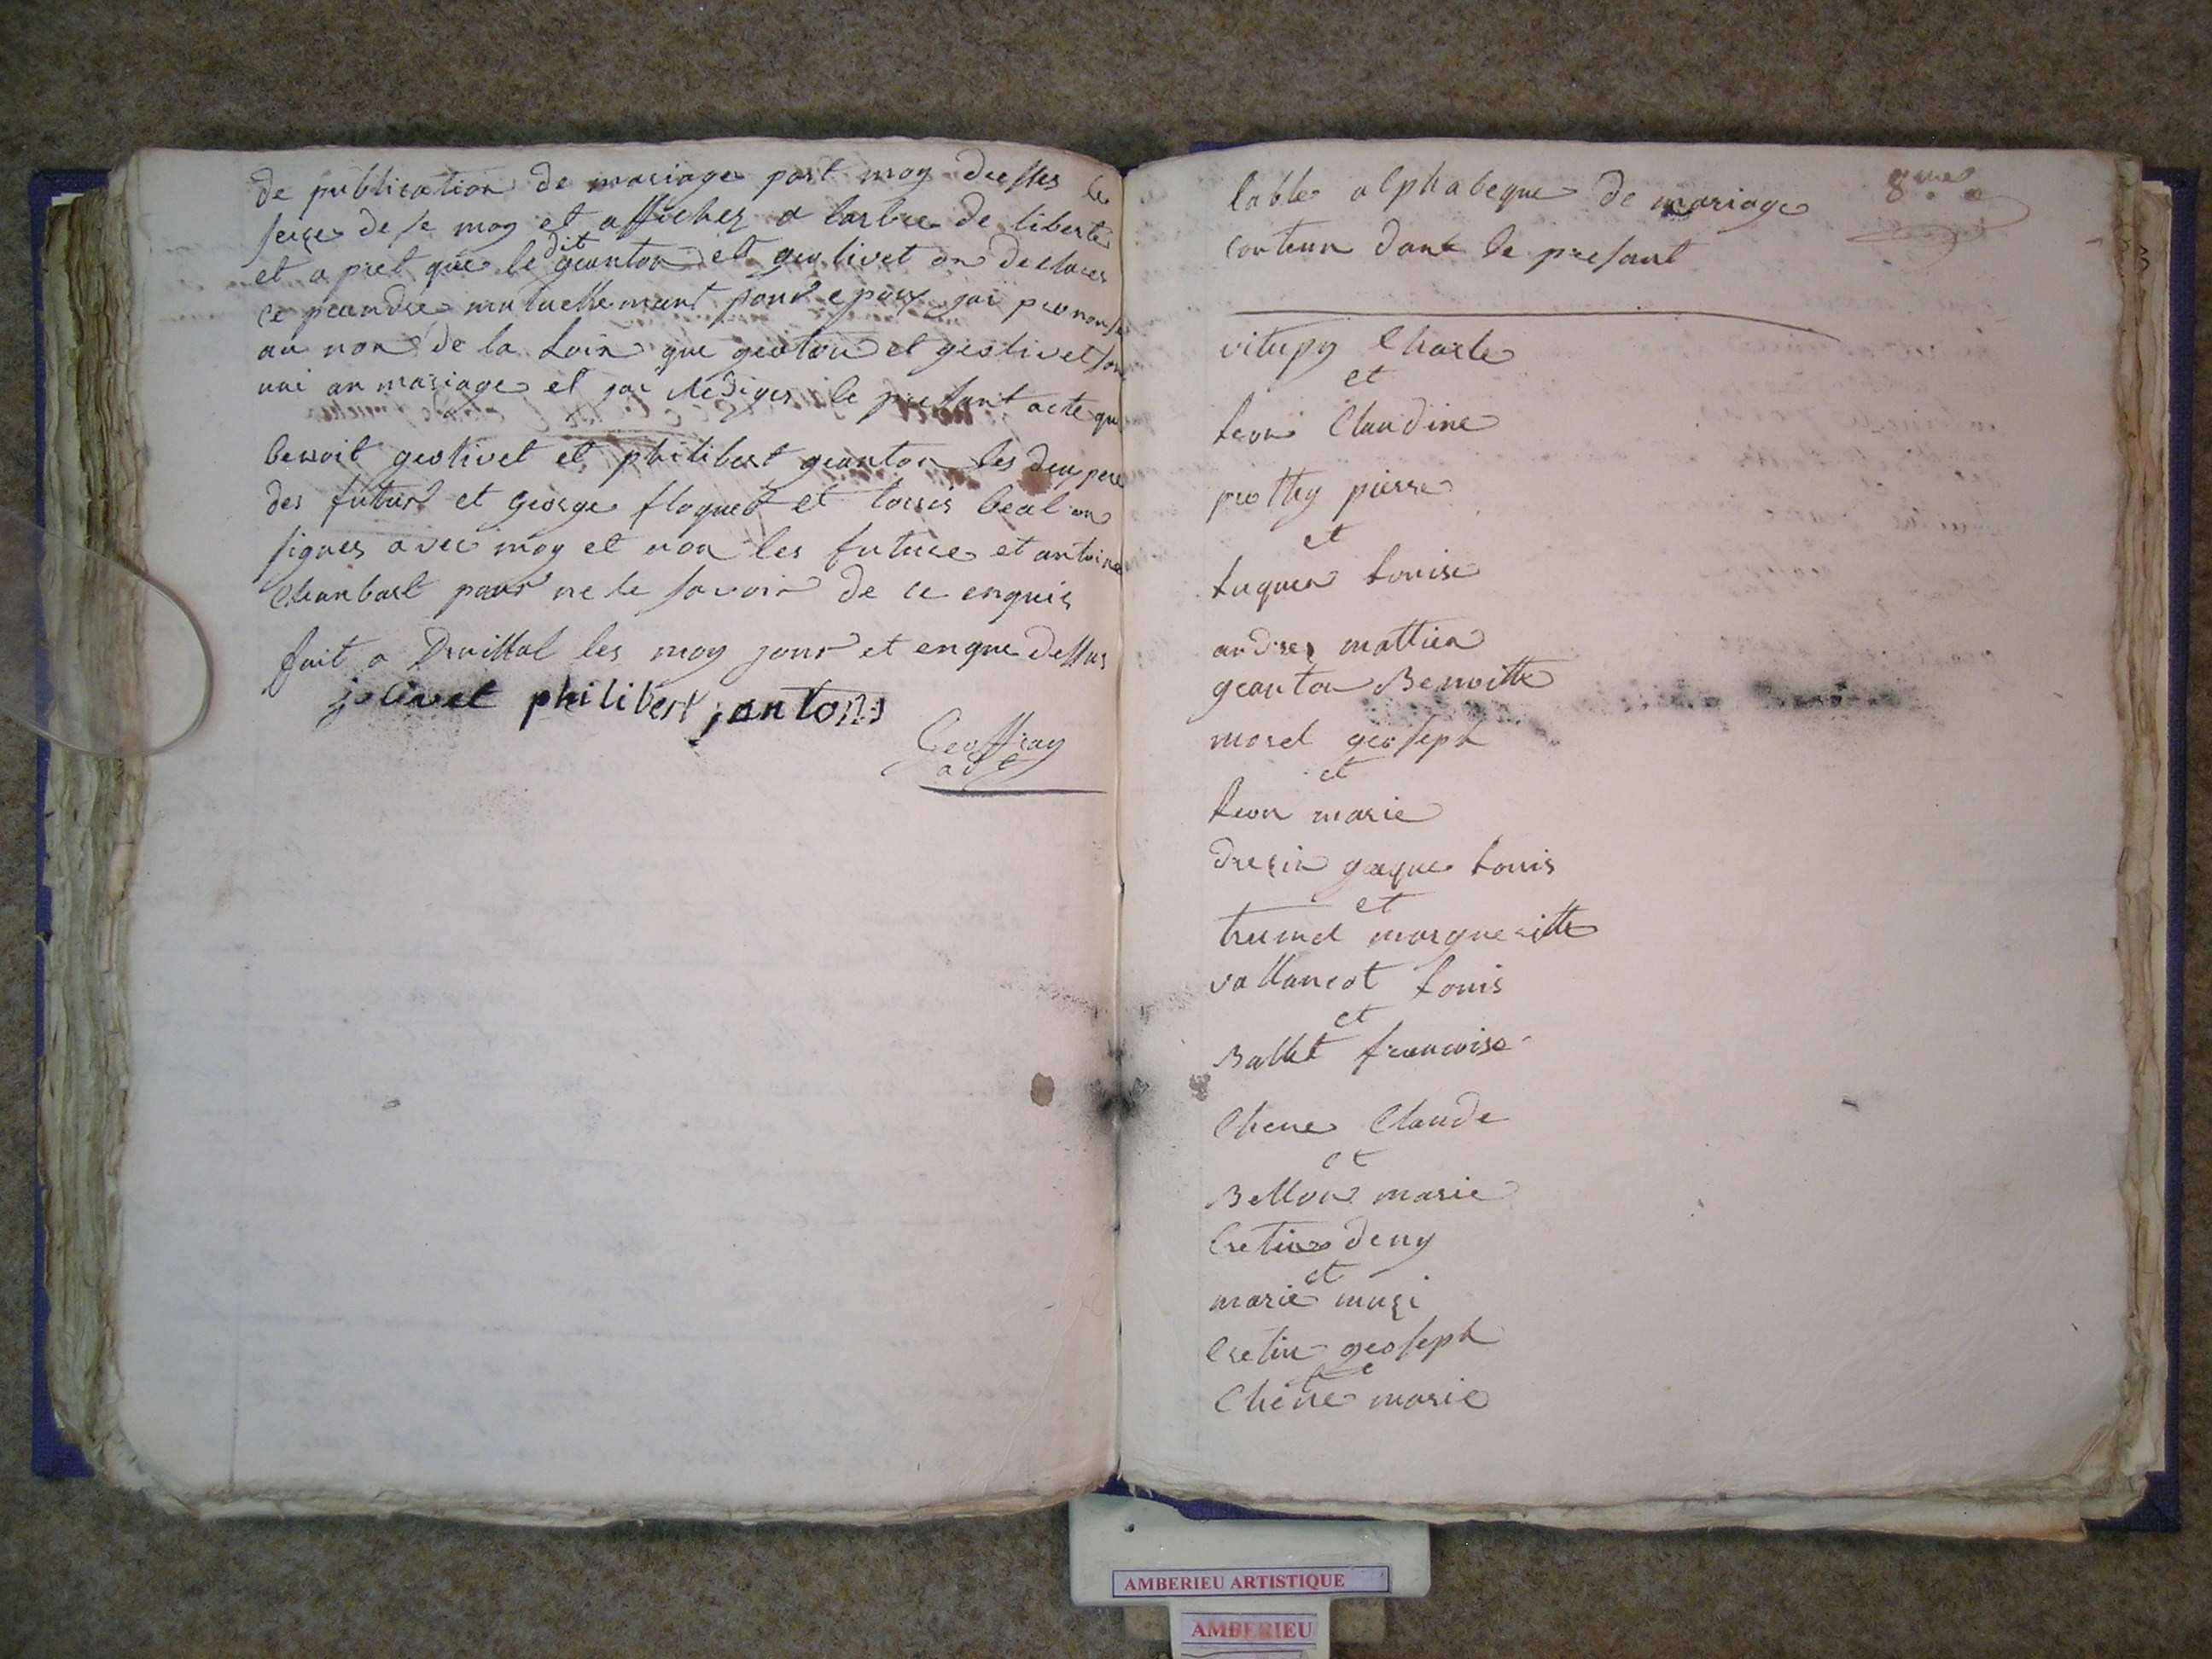 de publication de mariage part moy dresses le
seize de se moy et affichez a larbre de liberté
et a pret que le dit geanton et geolivet on declarer
ce prendre mutuellemant pour epoux jai prononse
au non de la Loix que geoton et geolivet son
uni an mariage et jai Rediger le presant acte que
benoit geolivet et philibert geanton les deu pere
des futur et george floquet et louis beal on
signer avec moy et non les future et antoine
Chanbart pour ne le savoir de ce enquis
fait a Druillat les moy jour et en que dessus
jolivet philibert jantons
Geoffray
table alphabeque de mariage
8me
contenu dant le presant
vitupy Charle
et
Leon Claudine
prothy pierre
et
Luquen Louise
andrey mattieu
geanton Benoitte
morel geoseph
et
Leon marie
drezin gacque Louis
et
trumel margueritte
vallancot Louis
et
Ballet francoise
Chene Claude
et
Bellon marie
Cretin deny
et
marie muzi
Cretin geoseph
et
Chêne marie
AMBERIEU ARTISTIQUE
AMBERIEU